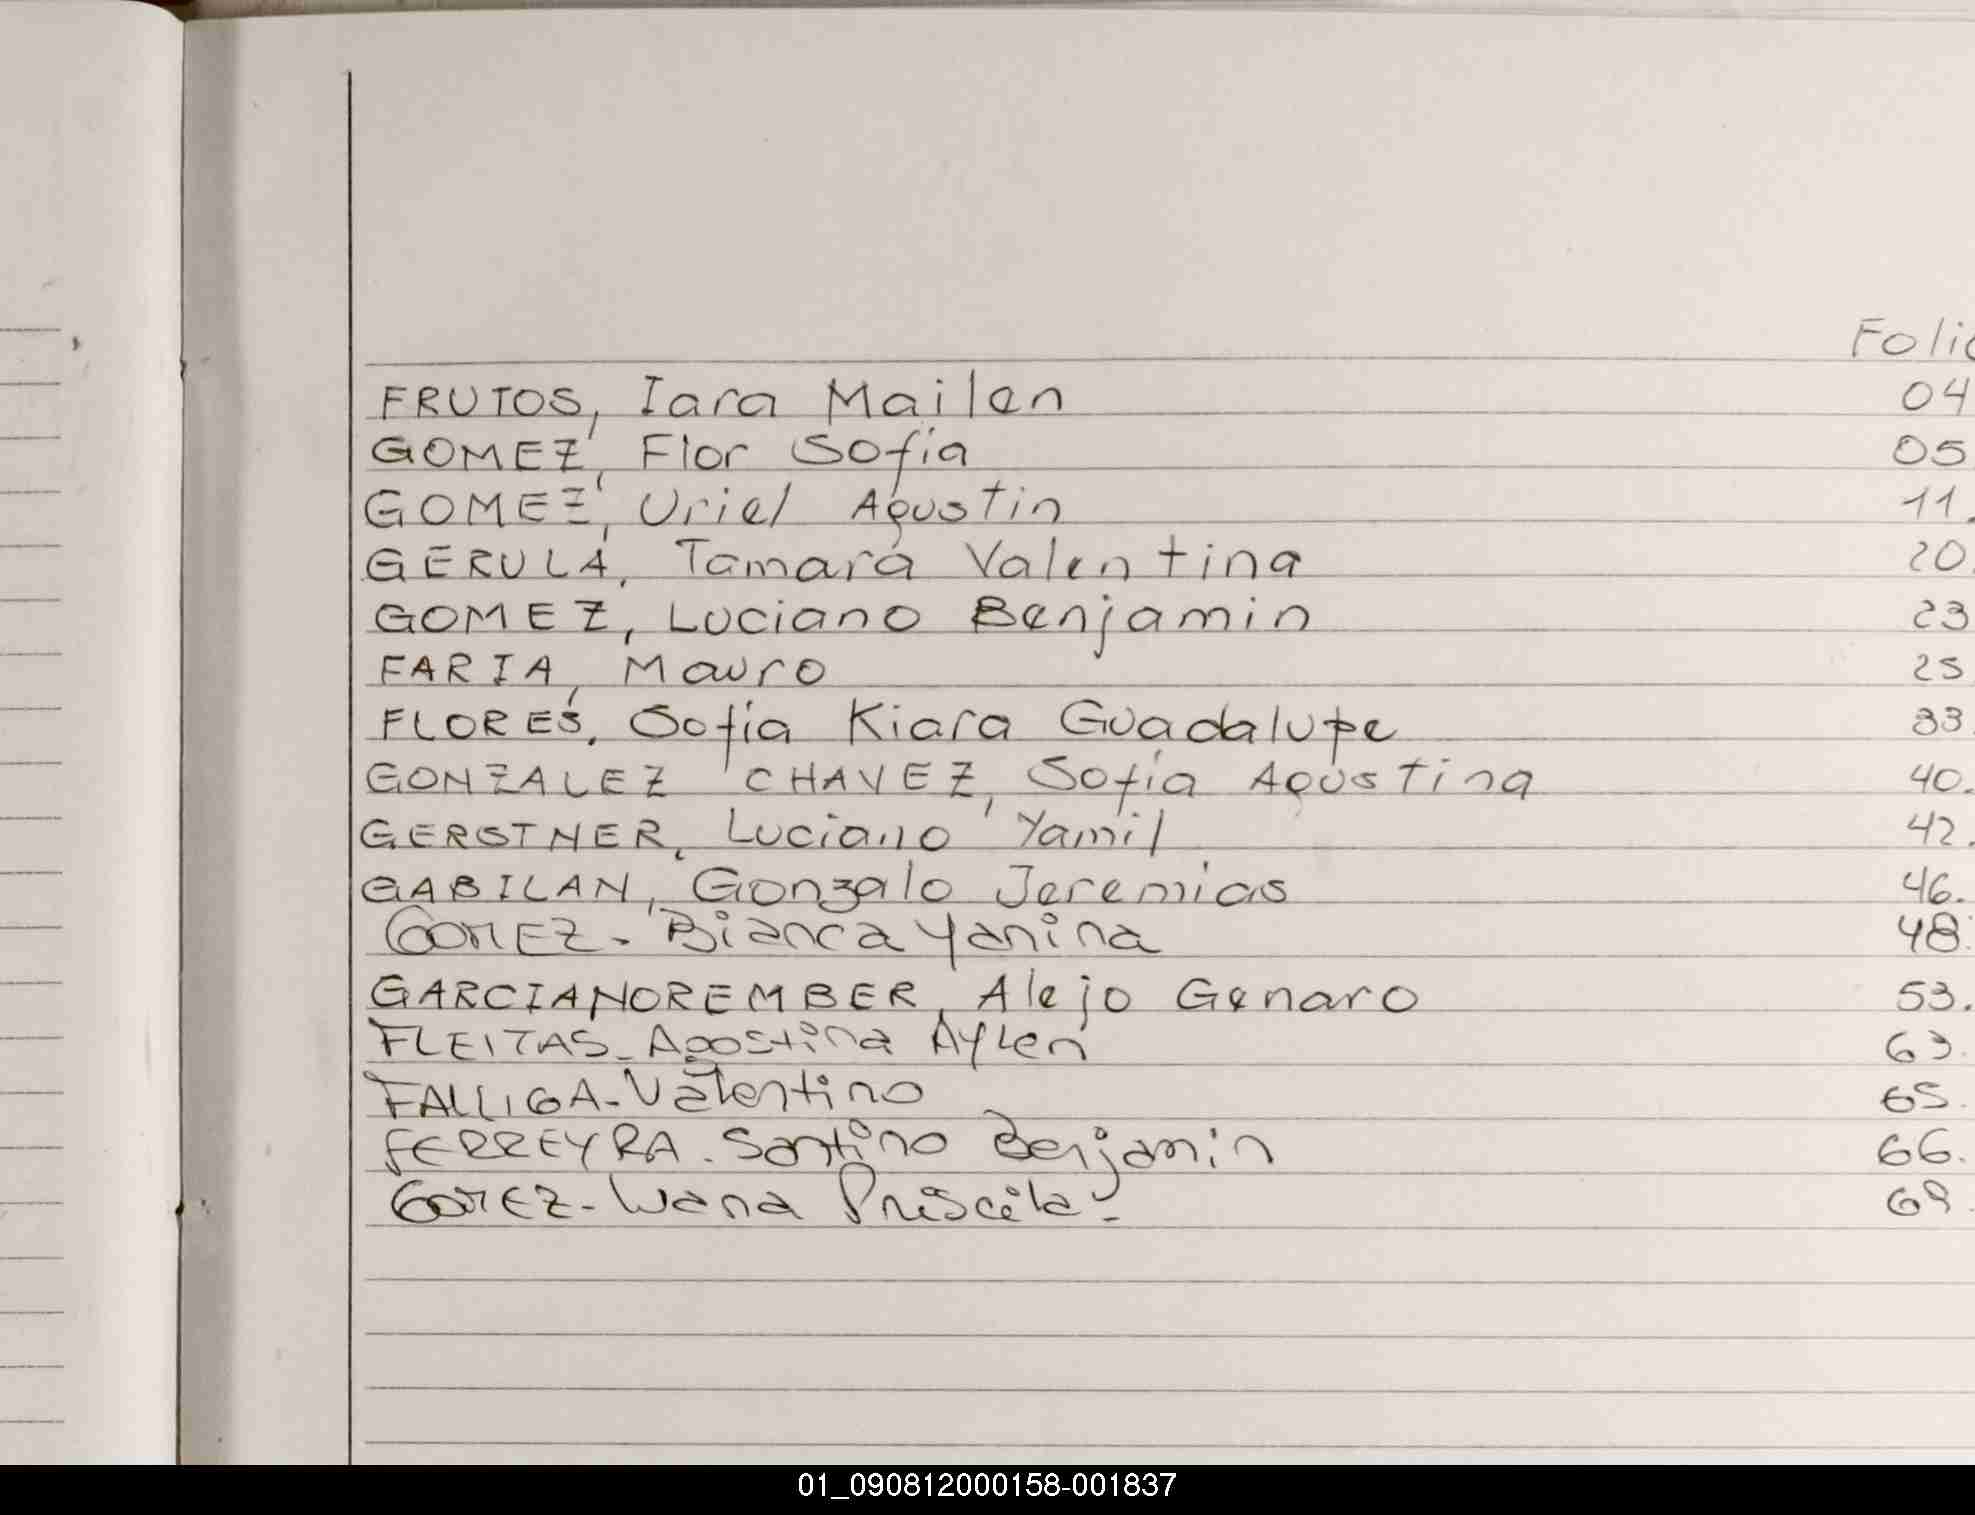 Folio
FRUTOS, Iara Mailen 04
GOMEZ, Flor Sofia 05
GOMEZ, Uriel Agustin 11.
GERULA, Tamara Valentina 20.
GOMEZ, Luciano Benjamin 23
FARIA, Mauro 25
FLORES, Sofia Kiara Guadalupe 33.
GONZALEZ CHAVEZ, Sofia Agustina 40.
GERSTNER, Luciano Yamil 42.
GABILAN, Gonzalo Jeremias 46.
GOMEZ- Bianca Yanina 48.
GARCIANOREMBER, Alejo Genaro 53.
FLEITAS- Agostina Aylen 63.
FALLIGA- Valentino 65.
FERREYRA. Santino Benjamin 66.
GOMEZ- Wana Priscila- 69.
01_090812000158-001837